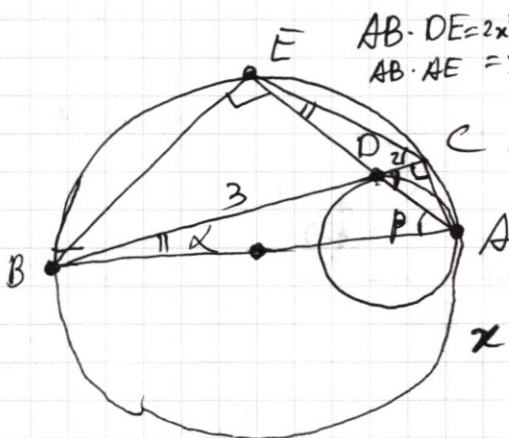 E
AB · DE = 2x
AB · AE =
C
D 2
3
α
β
B
A
x